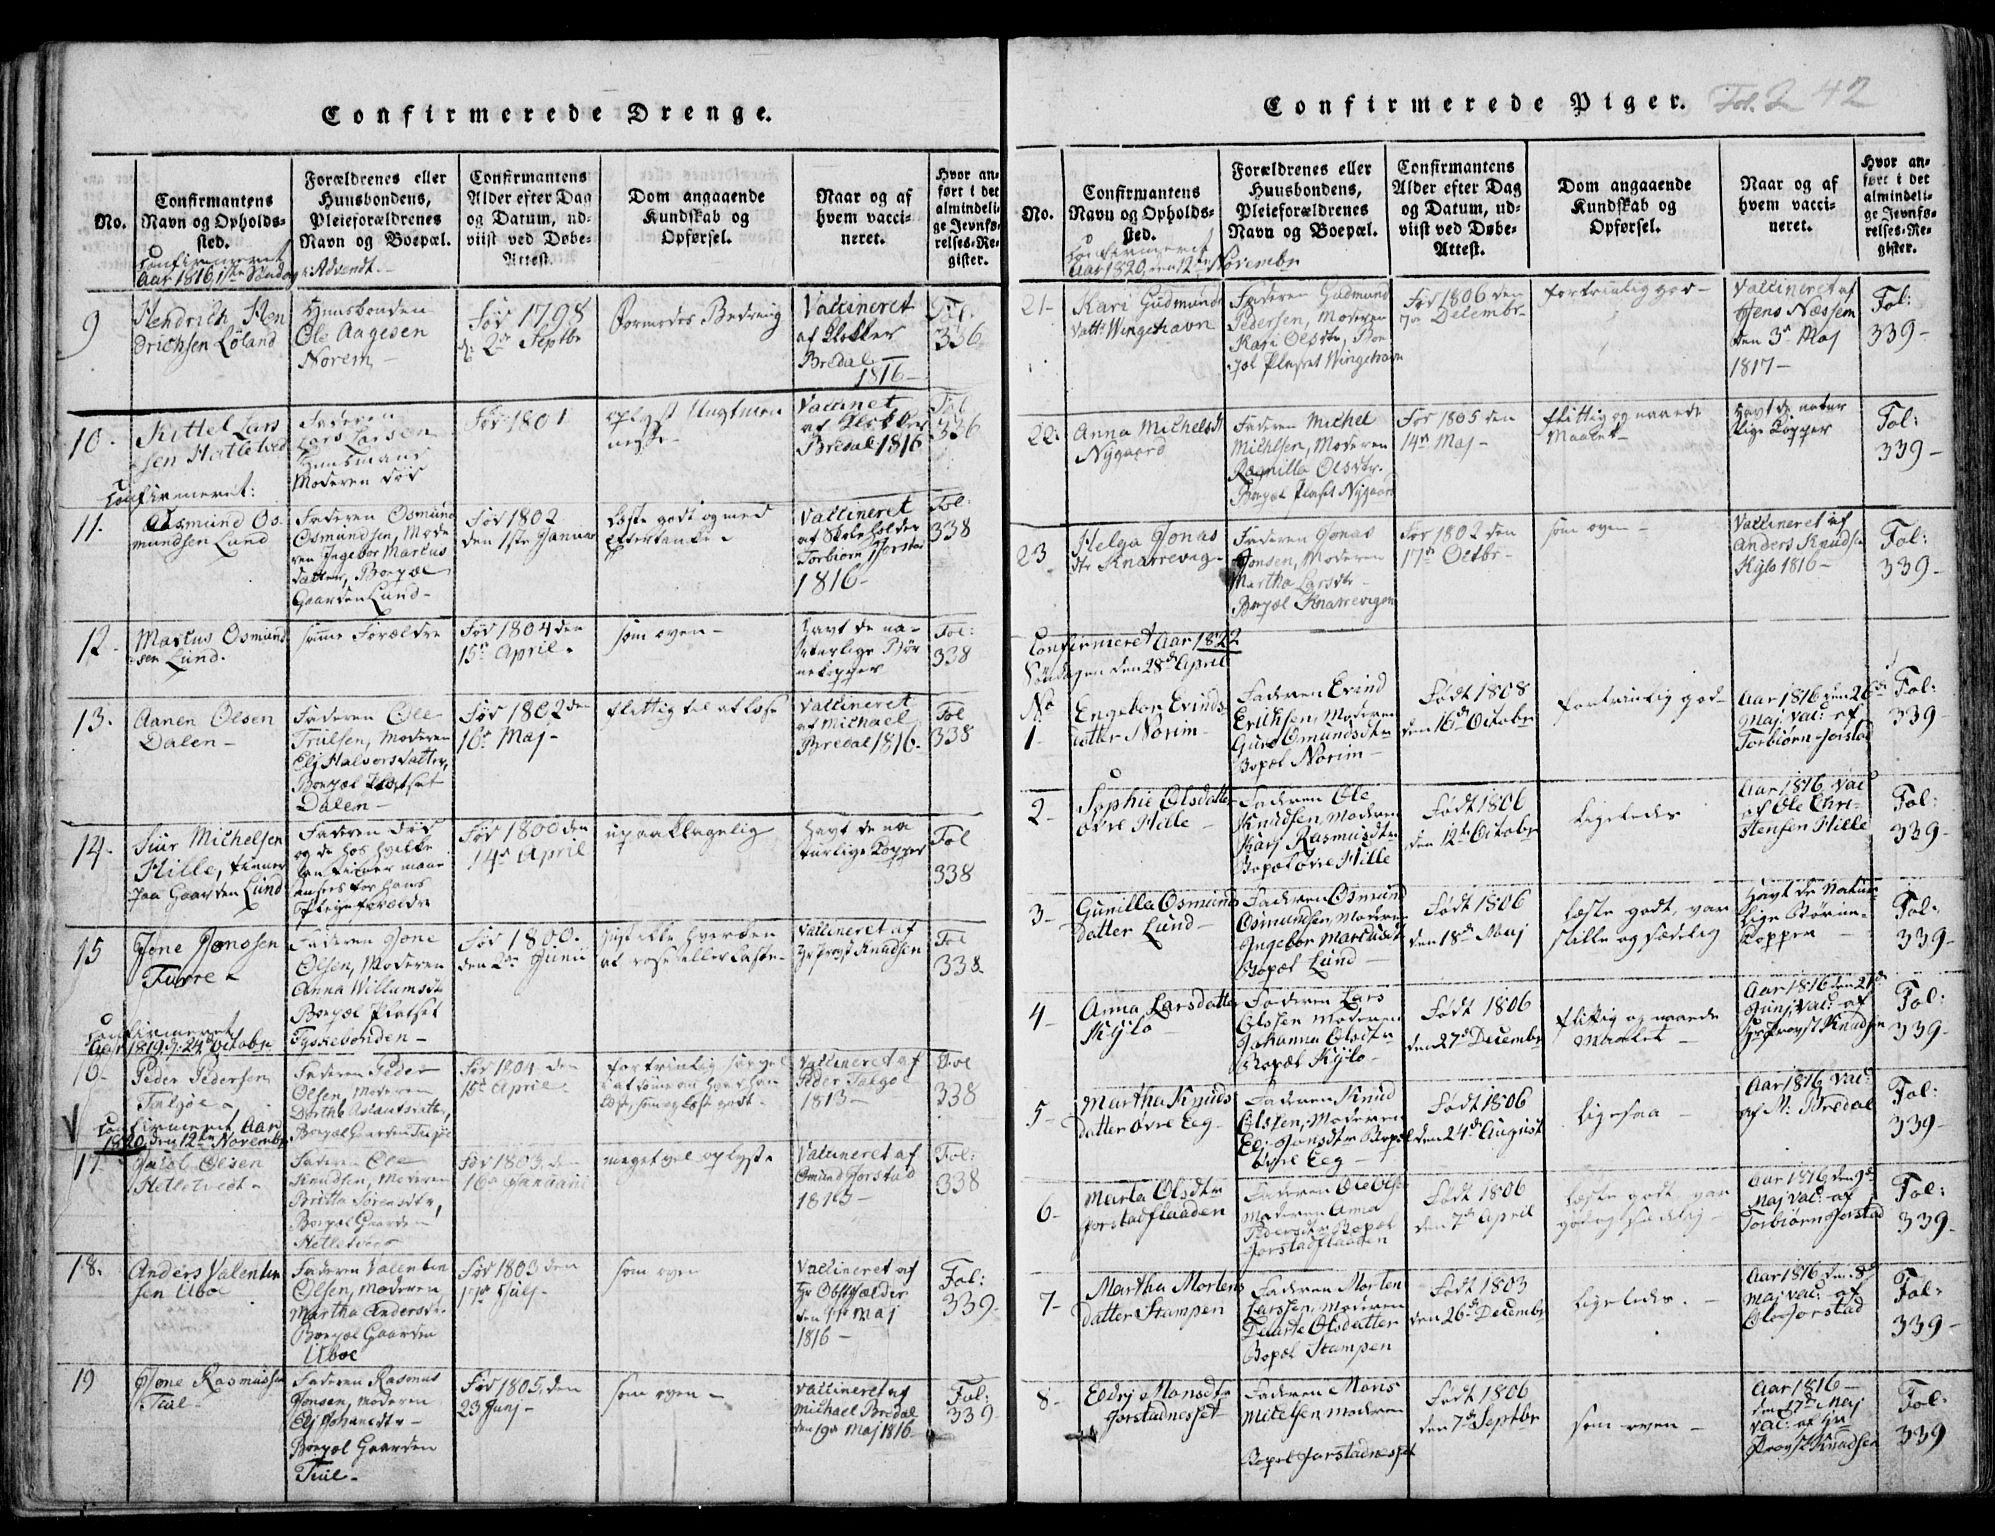 Confirmerede Drenge.
No.
Confirmantens
Navn og Opholds-
sted.
Forældrenes eller
Huusbondens,
Pleieforældrenes
Navn og Boepæl.
Confirmantens
Alder efter Dag
og Datum, ud-
viist ved Døbe-
Attest.
Dom angaaende
Kundskab og
Opførsel.
Naar og af
hvem vacci-
neret.
Hvor an-
ført i det
almindeli-
ge Jevnfø-
relses-Re-
gister.
Confirmeret
Aar 1816, 1ste Søndag i Advendt.
9
Hendrich Hen
drichsen Løland
Huusbonden
Ole Aagesen
Norem
Fød 1798
d: 2den Septbr
Formodes Bedring
Vaccineret
af Klokker
Bredal
1816
Fol.
336
10.
Kittel Lars
sen Hatletved
Faderen
Lars Larsen
Huusmand
Moderen død
Fød 1801
Vaccinet
af Klokker
Bredal 1816
Fol
336
Confirmeret:
11.
Aasmund Os-
mundsen Lund
Faderen Osmund
Osmundsen, Mode
ren Ingebor Marcus
datter, Boepæl
Gaarden Lund
Fød 1802
den 1ste Januar
læste godt og med
Eftertanke
Vaccineret
af Skoleholder
Torbiørn Jorstad
1816
Fol:
338
12.
Marcus Osmund
sen Lund.
samme Forældre
Fød 1804 den
15de April
som oven
Havt de na-
turlige Bør
nekopper
Fol:
338
13.
Aanen Olsen
Dalen
Faderen Ole
Trulsen, Moderen
Elj Halvorsdatter,
Boepæl Pladset
Dalen
Fød 1802 den
16de Maj
flittig til at læse
Vaccineret
af Michael
Bredal 1816
Fol
338
14.
Siur Michelsen
Hille, tiener
paa Gaarden Lund
Faderen død
og de hos hvilke
han tiener maae
ansees for hans
Pleieforældre
Fød 1800 den
14de April
upaaklagelig
Havt de na
turlige Kopper
Fol
338
15
Jone Jonssen
Furre
Faderen Jone
Olsen, Moderen
Anna Willumsdtr
Boepæl Pladset
Tyskevonden
Fød 1800.
den 2den Junii
just ikke hverken
at rose eller laste
Vaccineret af
Hr Provst Knudsen
Fol
338
Confirmeret
Aar 1819, d. 24de Octobr
16
Peder Pedersen
Talgøe
Faderen Peder
Olsen, Moderen
Dorthe Aslaksdatter,
Boepæl Gaarden Talgøe
Fød 1804 den
15de April
Vaccineret af
Peder Talgøe
1813
Fol
338
Confirmeret Aar
1820, den 12te Novembr
17
Jacob Olsen
Hetletvedt
Faderen Ole
Knudsen, Moderen
Britta Sørensdtr,
Boepæl Gaarden
Hetletved
Fød 1803. den
16de Januarii
meget vel oplyst
Vaccineret af
Omund Jorstad
1813
Fol:
338
18.
Anders Valentin
sen Uboe
Faderen Valentin
Olsen, Moderen
Martha Andersdtr.
Boepæl Gaarden
Uboe
Fød 1803 den
17de Julj
som oven
Vaccineret af
Hr Obstfælder
den 1ste Maj
1816
Fol:
339
19
Jone Rasmussen
Tuel
Faderen Rasmus
Jonsen, Moderen
Elj Johansdtr
Boepæl Gaarden
Tuel
Fød 1805, den
23 Junj
som oven
Vaccineret af
Michael Bredal
den 19de Maj 1816
Fol:
339
Confirmerede Piger.
Fol. 2 42
No.
Confirmantens
Navn og Opholds-
sted.
Forældrenes eller
Huusbondens,
Pleieforældrenes
Navn og Boepæl.
Confirmantens
Alder efter Dag
og Datum, ud-
viist ved Døbe-
Attest.
Dom angaaende
Kundskab og
Opførsel.
Naar og af
hvem vacci-
neret.
Hvor an-
ført i det
almindeli-
ge Jevnfø-
relses-Re-
gister.
Confirmeret
Aar 1820, den 12te Novembr
21
Kari Gudmunds
datter Wingehavn
Faderen Gudmund
Pedersen, Moderen
Kari Olsdtr, Boe
pæl Pladset Wingehavn
Fød 1806 den
7de Decembr
fortrinlig god
Vaccineret af
Jens Næssem
den 3de Maj
1817
Fol:
339
22.
Anna Michelsdtr
Nygaard
Faderen Michel
Michelsen, Moderen
Ragnilla Olsdtr.
Boepæl Pladset Nygaard
Fød 1805 den
14de Maj
flittig og naaede
Maalet
Havt de natur
lige Kopper
Fol:
339
23
Helga Jonas
dtr Knarrevig
Faderen Jonas
Jonsen, Moderen
Martha Larsdtr
Boepæl Knarrevigen
Fød 1802 den
17de Octbr
som oven
Vaccineret af
Anders Knudsen
Kylo 1816
Fol:
339
Confirmeret Aar 1822
Søndagen den 28de April
No
1
Engebor Evinds
datter Norim
Faderen Evind
Erichsen, Moderen
Guro Omundsdtr
Bopæl Norim
Født 1808
den 16de Octobr
fortrinlig god
Aar 1816 den 26de
Maj Vac: af
Torbiørn Jorstad
Fol:
339
2
Sophie Olsdatter
Øvre Hille
Faderen Ole
Knudsen, Moderen
Karj Rasmusdtr
Bopæl Øvre Hille
Født 1806
den 12te Octobr
Ligeledes
Aar 1816 Vac:
af Ole Chri-
stensen Hille
Fol:
339
3
Gunilla Osmunds
datter Lund
Faderen Osmund
Osmundsen, Moderen
Ingebor Marcusdtr
Bopæl Lund
Født 1806
den 18de Maj
læste godt, var
stille og sædelig
Havt de Natur
lige Børne-
Kopper
Fol:
339
4
Anna Larsdatter
Kylo
Faderen Lars
Olssen Moderen
Johanna Olsdtr
Bopæl Kylo
Født 1806
den 27de Decembr
flittig og naaede
Maalet
Aar 1816 den 21de
Junj, Vac: af
Hr Provst Knudsen
Fol:
339
5
Martha Knuds
datter Øvre Eeg
Faderen Knud
Olsten, Moderen
Elj Jonsdtr Bopæl
Øvre Eeg
Født 1806
den 24de August
Ligesaa
Aar 1816 Vac:
af M: Bredal
Fol:
339
6
Marta Olsdtr
Jorstadflaaden
Faderen Ole Olsen
Moderen Anna
Pedersdtr Bopæl
Jorstadflaaden
Født 1806
den 7de April
læste godt, var
god og sædelig
Aar 1816 den 9de
Maj Vac: af
Torbiørn Jorstad
Fol:
339
7
Martha Mortens
datter Stampen
Faderen Morten
Larssen, Moderen
Deurte Olsdatter
Bopæl Stampen
Født 1803
den 26de Decembr
Ligeledes.
Aar 1816 den 8de
Maj Vac: af
Ole Jorstad
Fol:
339
8
Eldrj Monsdtr
Jorstadnesset
Faderen Mons
Mitelsen Moderen
Bopæl Jorstadnesset
Født 1806
den 7de Septbr
som oven
Aar 1816
den 17de Maj
Vac: af Hr
Provst Knudsen
Fol:
339